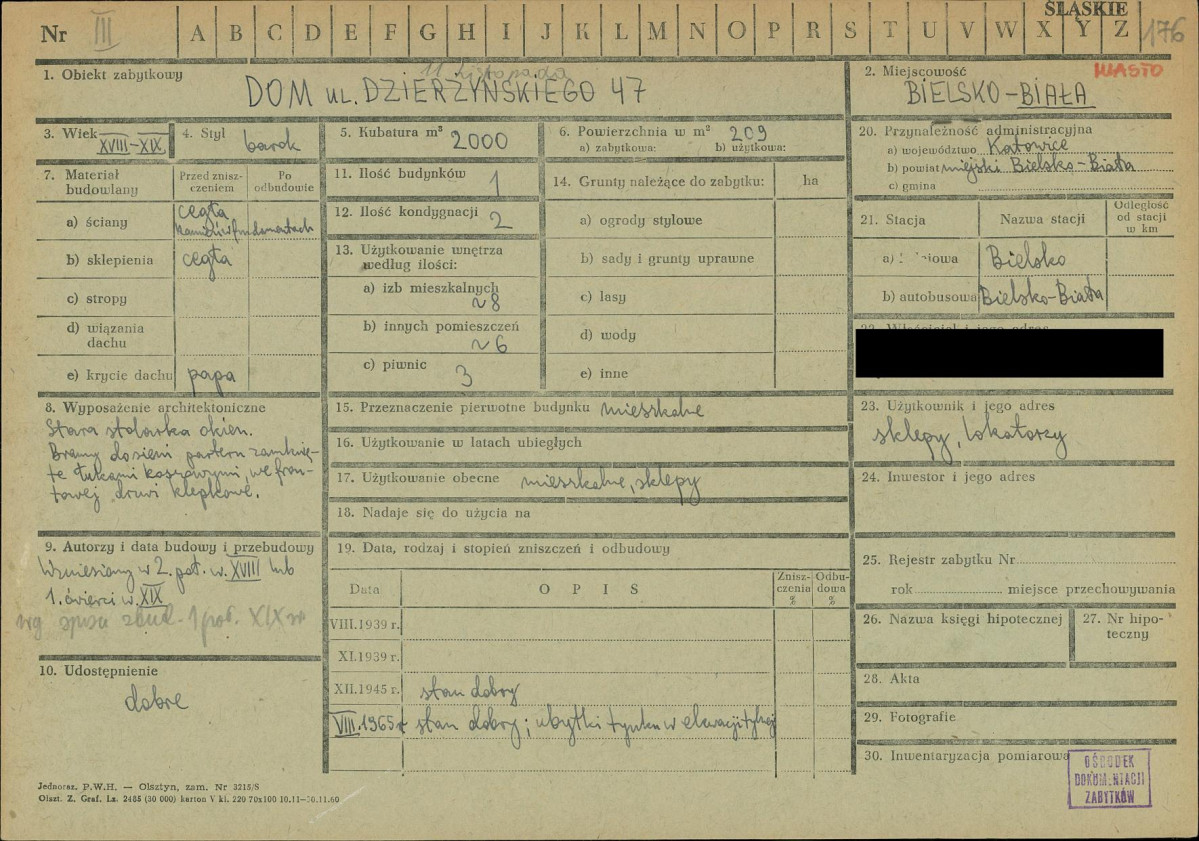 ŚLĄSKIE
Nr III A B C D E F G H I J K L M N O P R S T U V W X Y Z 176
1. Obiekt zabytkowy
11 Listopada
DOM ul. DZIERŻYŃSKIEGO 47
2. Miejscowość MIASTO
BIELSKO-BIAŁA
3. Wiek
XVIII-XIX
4. Styl
barok
5. Kubatura m³
2000
6. Powierzchnia w m² 209
a) zabytkowa: b) użytkowa:
7. Materiał budowlany
Przed zniszczeniem
Po odbudowie
a) ściany cegła
kamień w fundamentach
b) sklepienia cegła
c) stropy
d) wiązania
dachu
e) krycie dachu papa
8. Wyposażenie architektoniczne
Stara stolarka okien.
Bramy do sieni parteru zamknię-
te łukami koszowymi, we fron-
towej drzwi klepkowe.
9. Autorzy i data budowy i przebudowy
Wzniesiony w 2. poł. w. XVIII lub
1. ćwierci w. XIX
wg spisu zbud. 1 poł. XIX w
10. Udostępnienie
dobre
11. Ilość budynków 1
12. Ilość kondygnacji 2
13. Użytkowanie wnętrza
według ilości:
a) izb mieszkalnych
~8
b) innych pomieszczeń
~6
c) piwnic
3
14. Grunty należące do zabytku: ha
a) ogrody stylowe
b) sady i grunty uprawne
c) lasy
d) wody
e) inne
15. Przeznaczenie pierwotne budynku mieszkalne
16. Użytkowanie w latach ubiegłych
17. Użytkowanie obecne mieszkalne, sklepy
18. Nadaje się do użycia na
19. Data, rodzaj i stopień zniszczeń i odbudowy
Data OPIS Zniszczenia % Odbudowa %
VIII.1939 r.
XI.1939 r.
XII.1945 r. stan dobry
VIII.1965 r stan dobry; ubytki tynku w elewacji tylnej
20. Przynależność administracyjna
a) województwo Katowice
b) powiat miejski Bielsko-Biała
c) gmina
21. Stacja Nazwa stacji Odległość od stacji w km
a) Bielsko
b) autobusowa Bielsko-Biała
22. Właściciel i jego adres
23. Użytkownik i jego adres
sklepy, lokatorzy
24. Inwestor i jego adres
25. Rejestr zabytku Nr
rok miejsce przechowywania
26. Nazwa księgi hipotecznej
27. Nr hipo-
teczny
28. Akta
29. Fotografie
30. Inwentaryzacja pomiarowa
OŚRODEK
DOKUMENTACJI
ZABYTKÓW
Jednoraz. P.W.H. — Olsztyn, zam. Nr 3215/S
Olszt. Z. Graf. Lz. 2485 (30 000) karton V kl. 220 70x100 10.11—30.11.60